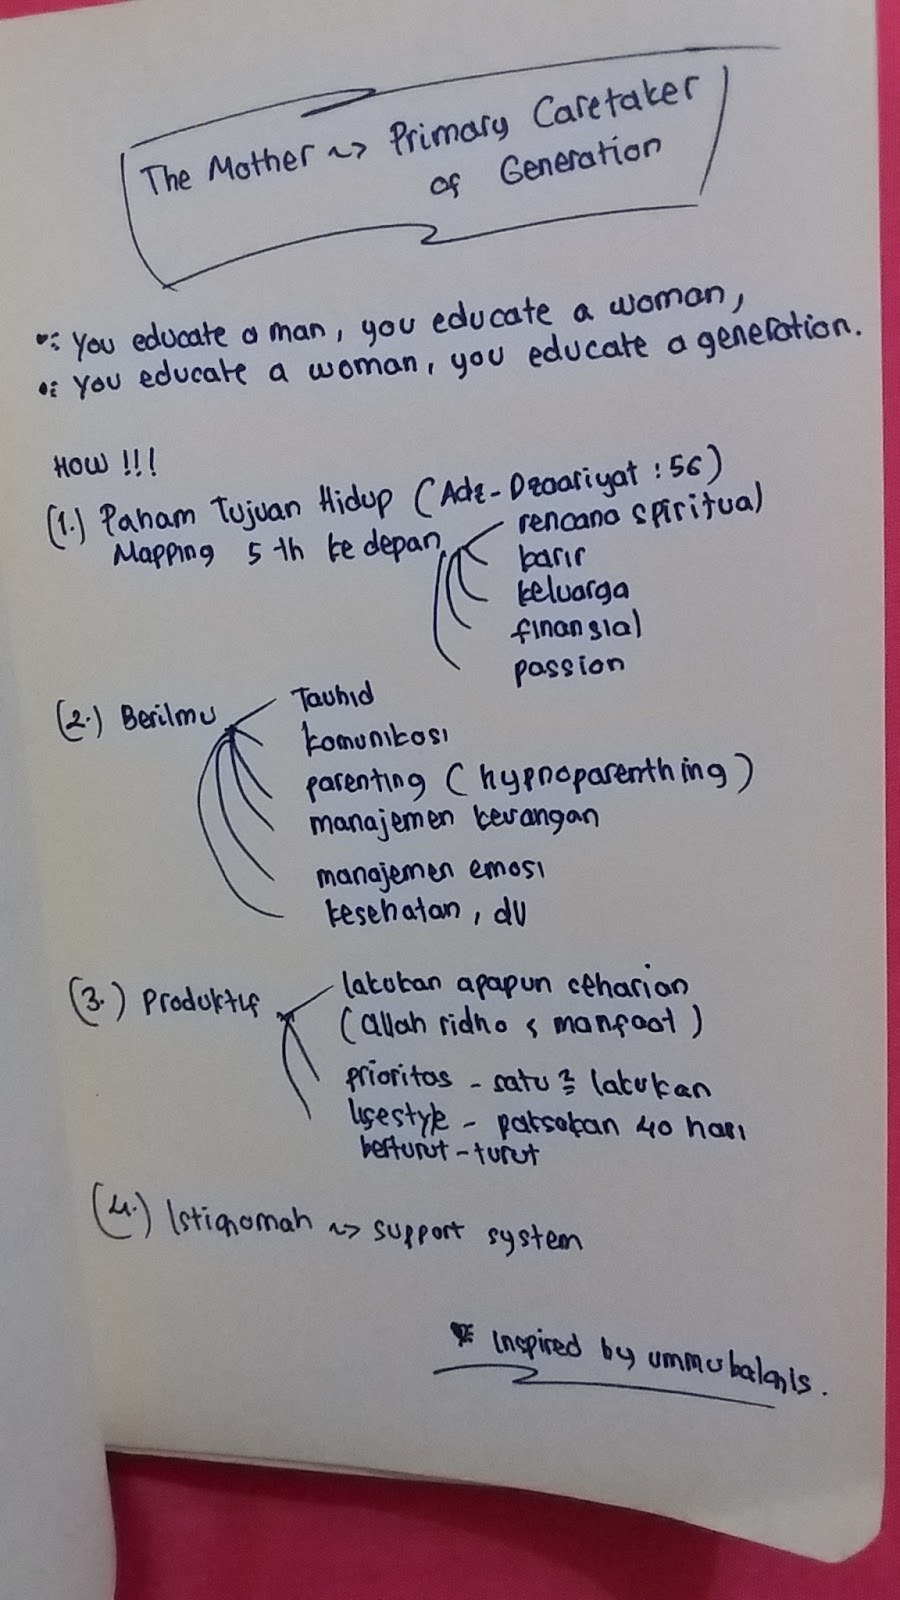 The Mother ~> Primary Caretaker
of Generation
You educate a man, you educate a woman,
You educate a woman, you educate a generation.
HOW !!!
(1.) Paham Tujuan Hidup (Adz-Dzaariyat : 56)
Mapping 5 th ke depan
rencana spiritual
karir
keluarga
finansial
passion
(2.) Berilmu
Tauhid
komunikasi
parenting (hypnoparenthing)
manajemen keuangan
manajemen emosi
kesehatan, dll
(3.) Produktif
lakukan apapun seharian
(Allah ridho & manfaat)
prioritas - satu2 lakukan
lifestyle - paksakan 40 hari
berturut-turut
(4.) Istiqomah ~> support system
Inspired by ummubalqis.